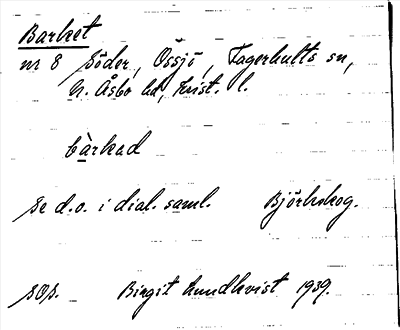 Barket
nr 8 Söder, Össjö, Fagerhults sn,
N. Åsbo hd, Krist. l.
bàrkad
Se d.o. i dial. saml. Björkskog.
SOS. Birgit Lundkvist 1939.